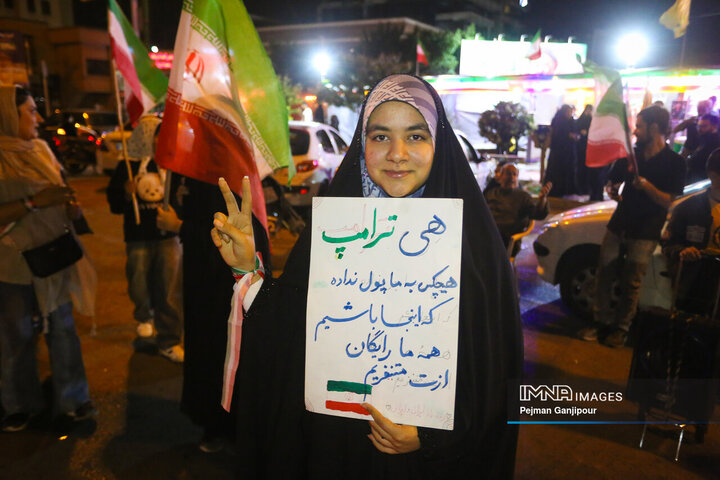 هی ترامپ
هیچکس به ما پول نداده
که اینجا باشیم
همه ما رایگان
ازت متنفریم
IMNA IMAGES
Pejman Ganjipour